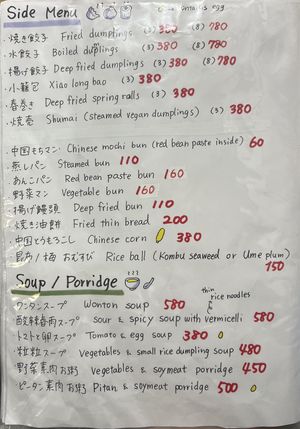 Side Menu contains egg
・焼き餃子 Fried dumplings (3) 380 (8) 780
・水餃子 Boiled dumplings (3) 380 (8) 780
・揚げ餃子 Deep fried dumplings (3) 380 (8) 780
・小籠包 Xiao long bao (3) 380
・春巻き Deep fried spring rolls (3) 380
・焼壳 Shumai (steamed vegan dumplings) (3) 380
・中国もちマン Chinese mochi bun (red bean paste inside) 60
・蒸しパン Steamed bun 110
・あんこパン Red bean paste bun 160
・野菜マン Vegetable bun 160
・揚げ饅頭 Deep fried bun 110
・焼き油餅 Fried thin bread 200
・中国とうもろこし Chinese corn 380
・昆布/梅 おむすび Rice ball (Kombu seaweed or Ume plum) 150
Soup / Porridge
thin rice noodles
・ワンタンスープ Wonton soup 580
・酸辣春雨スープ Sour & spicy soup with vermicelli 580
・トマトと卵スープ Tomato & egg soup 380
・粒粒スープ Vegetables & small rice dumpling soup 480
・野菜素肉お粥 Vegetables & soymeat porridge 450
・ピータン素肉お粥 Pitan & soymeat porridge 500